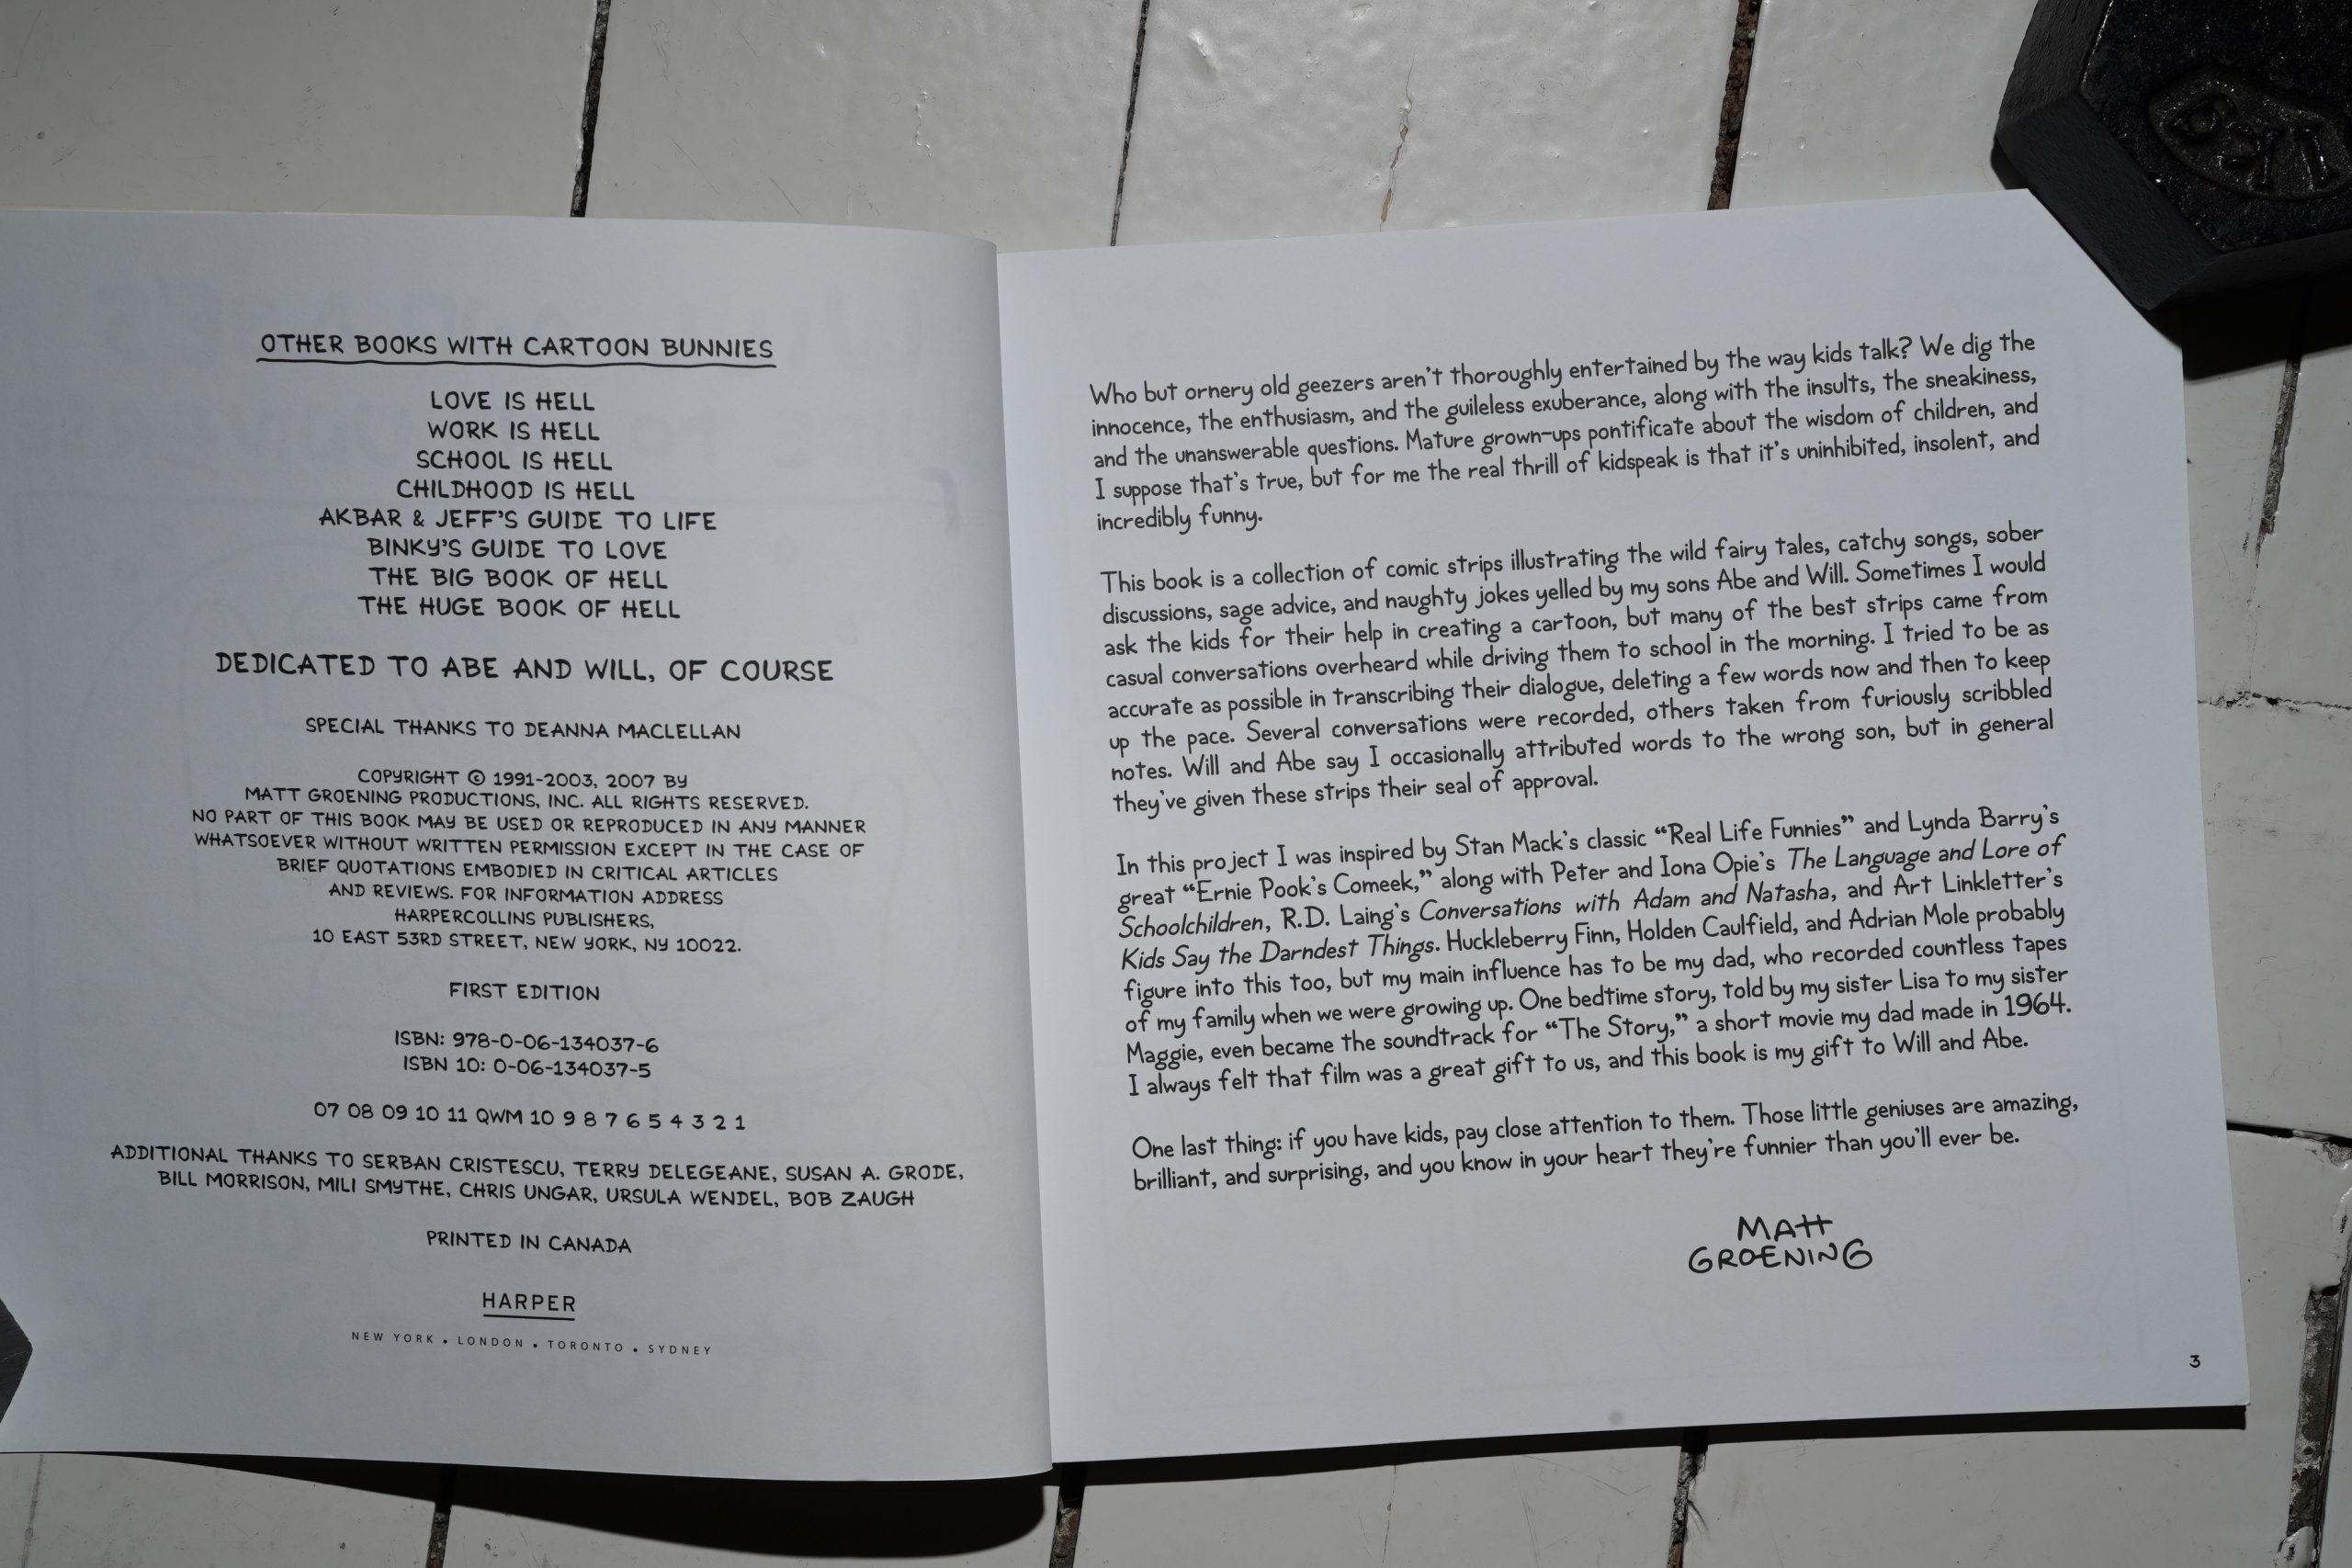 OTHER BOOKS WITH CARTOON BUNNIES
LOVE IS HELL
WORK IS HELL
SCHOOL IS HELL
CHILDHOOD IS HELL
AKBAR & JEFF'S GUIDE TO LIFE
BINKY'S GUIDE TO LOVE
THE BIG BOOK OF HELL
THE HUGE BOOK OF HELL
DEDICATED TO ABE AND WILL, OF COURSE
SPECIAL THANKS TO DEANNA MACLELLAN
COPYRIGHT © 1991-2003, 2007 BY
MATT GROENING PRODUCTIONS, INC. ALL RIGHTS RESERVED.
NO PART OF THIS BOOK MAY BE USED OR REPRODUCED IN ANY MANNER
WHATSOEVER WITHOUT WRITTEN PERMISSION EXCEPT IN THE CASE OF
BRIEF QUOTATIONS EMBODIED IN CRITICAL ARTICLES
AND REVIEWS. FOR INFORMATION ADDRESS
HARPERCOLLINS PUBLISHERS,
10 EAST 53RD STREET, NEW YORK, NY 10022.
FIRST EDITION
ISBN: 978-0-06-134037-6
ISBN 10: 0-06-134037-5
07 08 09 10 11 QWM 10 9 8 7 6 5 4 3 2 1
ADDITIONAL THANKS TO SERBAN CRISTESCU, TERRY DELEGEANE, SUSAN A. GRODE,
BILL MORRISON, MILI SMYTHE, CHRIS UNGAR, URSULA WENDEL, BOB ZAUGH
PRINTED IN CANADA
HARPER
NEW YORK • LONDON • TORONTO • SYDNEY
Who but ornery old geezers aren't thoroughly entertained by the way kids talk? We dig the
innocence, the enthusiasm, and the guileless exuberance, along with the insults, the sneakiness,
and the unanswerable questions. Mature grown-ups pontificate about the wisdom of children, and
I suppose that's true, but for me the real thrill of kidspeak is that it's uninhibited, insolent, and
incredibly funny.
This book is a collection of comic strips illustrating the wild fairy tales, catchy songs, sober
discussions, sage advice, and naughty jokes yelled by my sons Abe and Will. Sometimes I would
ask the kids for their help in creating a cartoon, but many of the best strips came from
casual conversations overheard while driving them to school in the morning. I tried to be as
accurate as possible in transcribing their dialogue, deleting a few words now and then to keep
up the pace. Several conversations were recorded, others taken from furiously scribbled
notes. Will and Abe say I occasionally attributed words to the wrong son, but in general
they've given these strips their seal of approval.
In this project I was inspired by Stan Mack's classic “Real Life Funnies” and Lynda Barry's
great “Ernie Pook's Comeek,” along with Peter and Iona Opie's The Language and Lore of
Schoolchildren, R.D. Laing's Conversations with Adam and Natasha, and Art Linkletter's
Kids Say the Darndest Things. Huckleberry Finn, Holden Caulfield, and Adrian Mole probably
figure into this too, but my main influence has to be my dad, who recorded countless tapes
of my family when we were growing up. One bedtime story, told by my sister Lisa to my sister
Maggie, even became the soundtrack for “The Story,” a short movie my dad made in 1964.
I always felt that film was a great gift to us, and this book is my gift to Will and Abe.
One last thing: if you have kids, pay close attention to them. Those little geniuses are amazing,
brilliant, and surprising, and you know in your heart they're funnier than you'll ever be.
MATT
GROENING
3